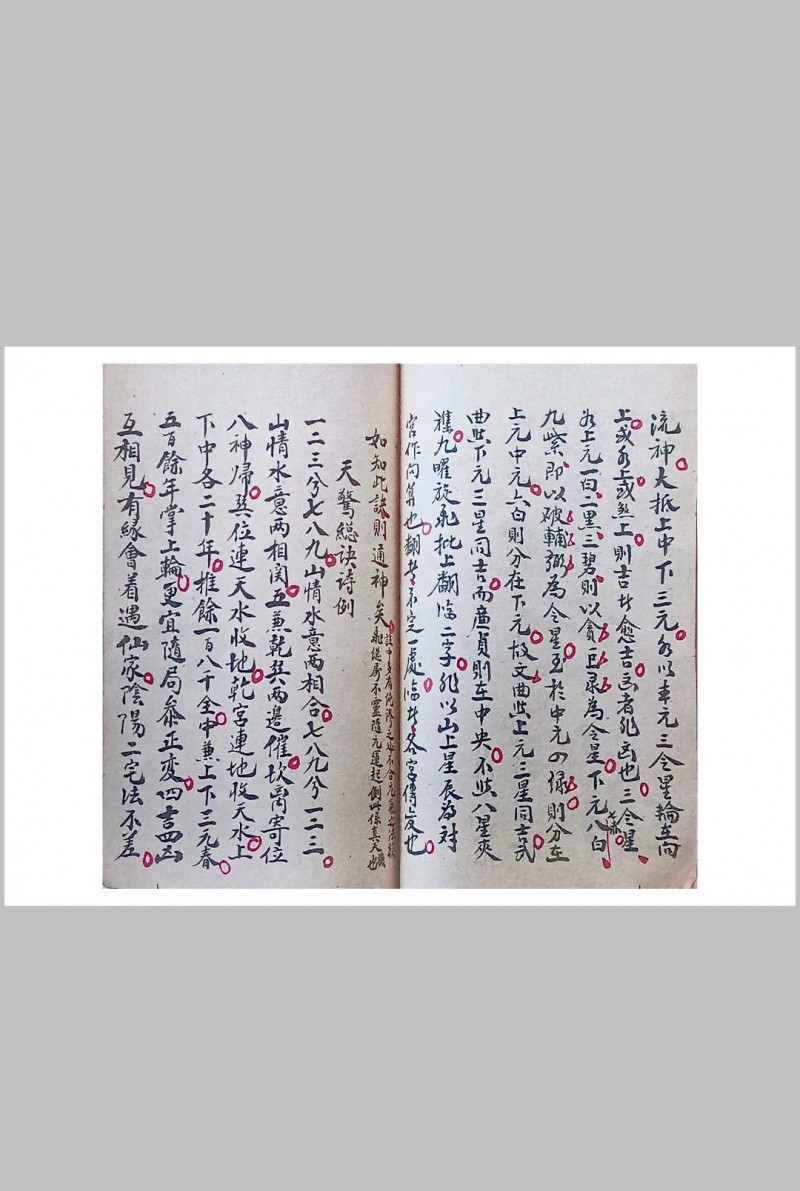 流神大抵上中下三元各以本元三令星輪在向
上或水上或煞上則吉者愈吉凶者非凶也三令星
如上元一白二黑三碧則以貪巨录為令星下元八白
七赤
九紫即以破輔弼為令星至於中元四緑則分在
上元中元六白則分在下元故文曲與上元三星同吉武
曲與下元三星同吉而廉貞則在中央不與八星夾
雜九曜旋飛挑上翻臨二字非以山上星辰為對
宮作向算也翻者不定一處臨者各字傳变也
如知此訣則通神矣
註中多有
不合元氣之
不靈隨元運起例此係真天驚也
天驚總訣詩例
一二三兮七八九山情水意兩相合七八九兮一二三
山情水意兩相関五兼乾巽兩邊催坎离寄位
八神歸巽位連天水收地乾宮連地收天水上
下中各二十年推餘一百八千全中兼上下三元春
五百餘年掌上輪更宜隨局叅正变四吉四凶
互相見有緣會着遇仙家陰陽二宅法不差